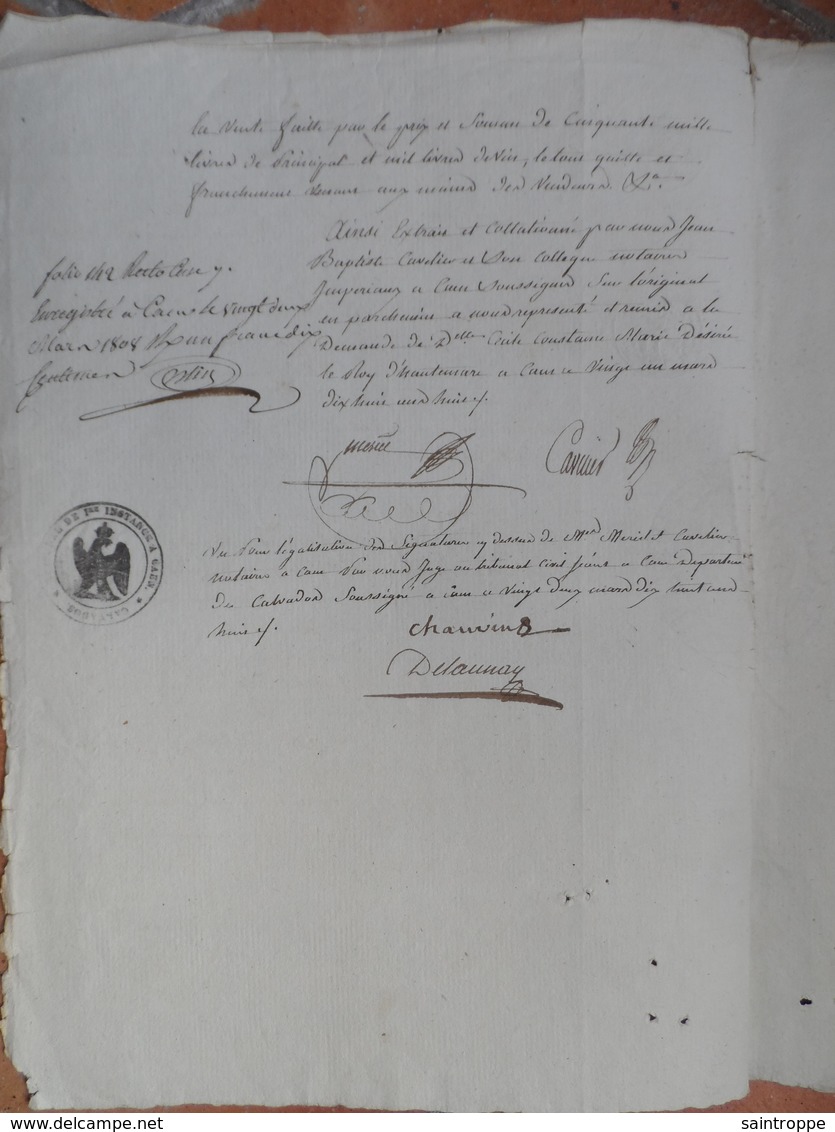 la vente faitte par le prix et somme de Cinquante mille
livres de Principal et mil livres de vin, le tout quitte et
franchement venant aux mains des Vendeurs. &a.
Ainsi Extrait et Collationné par nous Jean
Baptiste Cavelier et Son Collegue notaires
Imperiaux a Caen Soussignés Sur l'original
en parchemin a nous representé et remis a la
Demande de Dlle Cécile Constance Marie Désirée
le Roy d'hautemare a Caen ce Vingt un mars
dix huit cent huit /.
folio 142 Recto Case 7.
Enregistré à Caen le vingt deux
Mars 1808 Reçu un franc dix
Centimes
Meriel
Cavelier
Vu Pour légalisation des Signatures cy dessus de Mes Meriel et Cavelier
notaires a Caen Par nous Juge au tribunal civil séant a Caen Departemt
du Calvados Soussigné a Caen ce Vingt deux mars dix huit cent
huit /.
Chauvin
Delaunay
DE Ière INSTANCE A CAEN.
* CALVADOS *
saintroppe